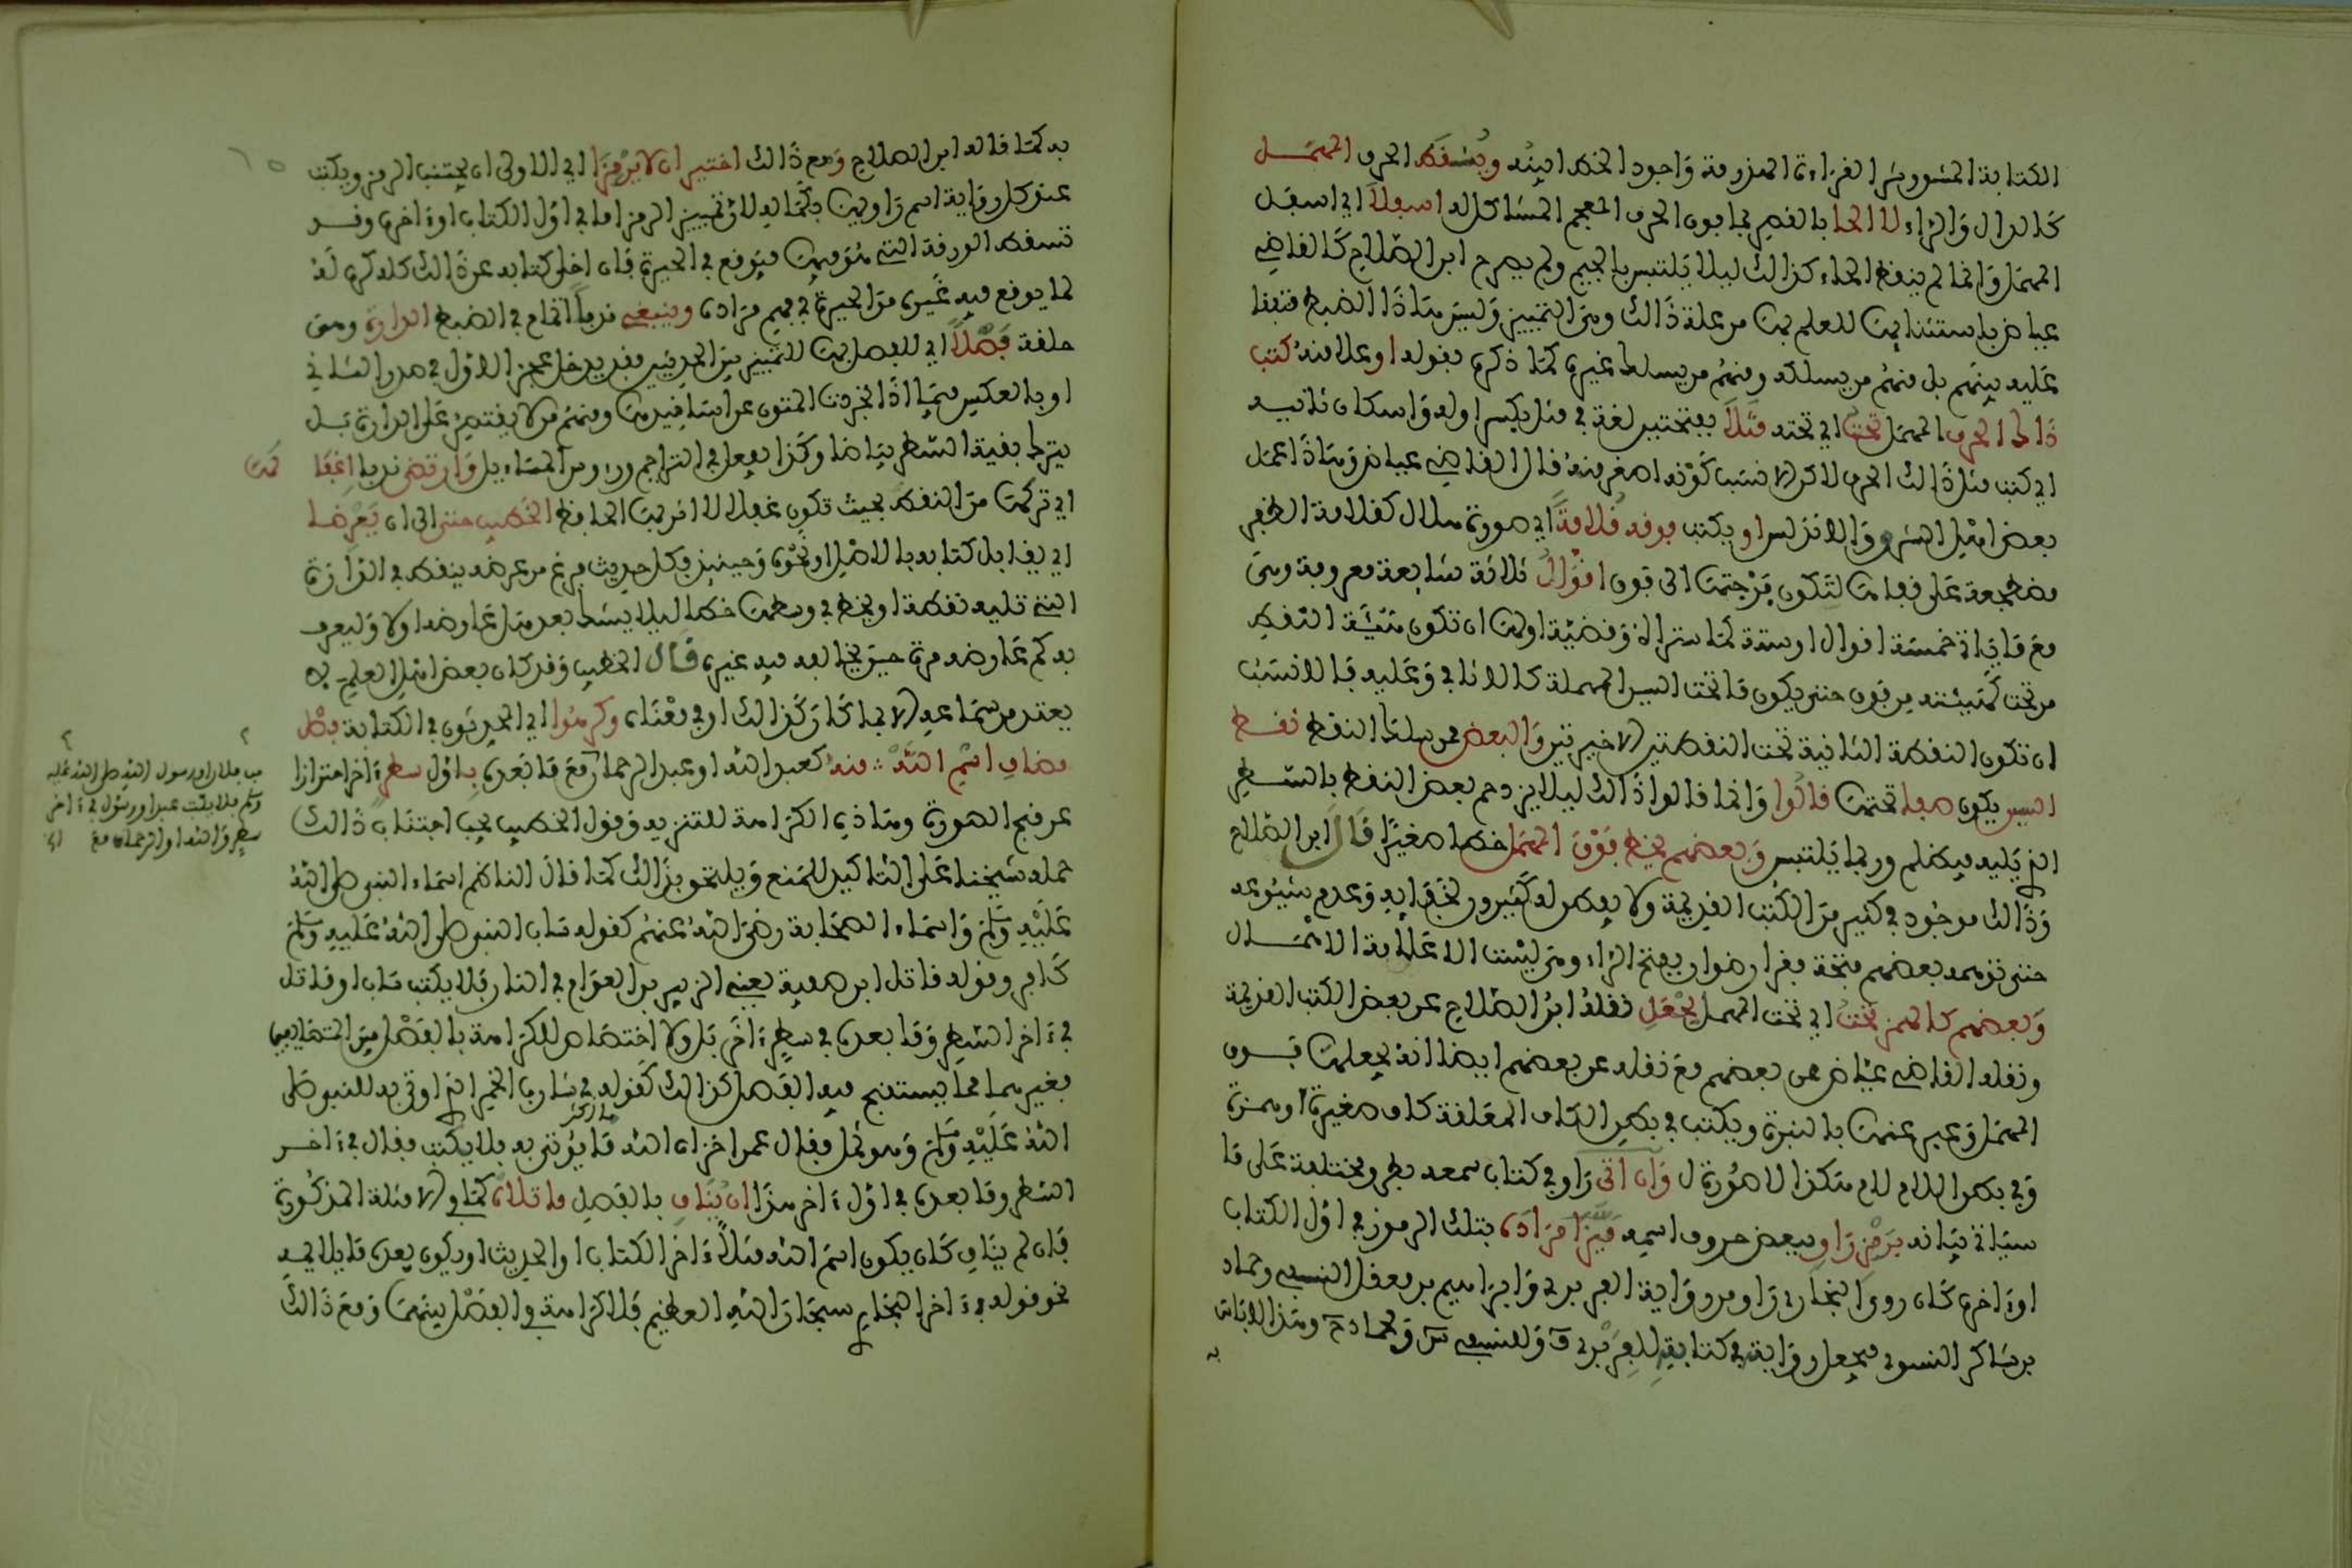 الكتابة المشق وشر القراءة الهذرمة واجود الخط ابينه وينقط الحرف المهمل
كالدال والراء لا الحا بالقصر بما فوق الحرف المعجم المشاكل له اسفلا اي اسفل
المهمل وانما لم ينقط الحاء كذالك ليلا يلتبس بالجيم ولم يصرح ابن الصلاح كالقاضي
عياض باستثنايها للعلم بها من علة ذالك وهي التمييز وليس هذا الضبط متفقا
عليه بينهم بل منهم من يسلكه ومنهم من يسلك غيره كما ذكره بقوله او علامة كتب
ذاك الحرف المهمل تحت اي تحته مثلا بفتحتين لغة في مثل بكسر اوله واسكان ثانيه
اي كتب مثل ذالك الحرف لاكن الانسب كونه اصغر منه قال القاضي عياض وهذا عمل
بعض اهل المشرق والاندلس او يكتب فوقه قلامة اي صورة هلال كقلامة الظفر
مضطجعة على قفاها لتكون فرجتها الى فوق اقوال ثلاثة شايعة معروفة وهي
مع ما ياتي خمسة اقوال او ستة كما سترى وقضية اولها ان تكون هيئة النقط
من تحت كهيئته من فوق حتى يكون ما تحت السين المهملة كالاثافي وعليه فالانسب
ان تكون النقطة الثانية تحت النقطتين الاخيرتين والبعض ممن سلك النقط نقط
السين يكون صفا تحتها قالوا وانما قالوا ذالك ليلا يزدحم بعض النقط بالسطر
الذي يليه فيظلم وربما يلتبس وبعضهم يخط فوق المهمل خطا صغيرا قال ابن الصلاح
وذالك موجود في كثير من الكتب القديمة ولا يفطن له كثيرون لخفايه وعدم شيوعه
حتى توهمه بعضهم فتحة فقرا رضوان بفتح الراء وهي ليست الا علامة الاهمال
وبعضهم كالهمز تحت اي تحت المهمل يجعل نقله ابن الصلاح عن بعض الكتب القديمة
ونقله القاضي عياض عن بعضهم مع نقله عن بعضهم ايضا انه يجعلها فوق
المهمل وعبر عنها بالنبرة ويكتب في بطن الكاف المعلقة كاف صغيرة او همزة
وفي بطن اللام لام هكذا لا صورة ل وان اتى راو في كتاب سمعه بطرق مختلفة على ما
سياتي بيانه برمز راو ببعض حروف اسمه ميزا مراده بتلك الرموز في اول الكتاب
او ءاخره كان روى البخاري راو من رواية الفربري وابراهيم بن معقل النسفي وحماد
بن شاكر النسوي فيجعل رواية في كتابه للفربري ف وللنسفي س ولحماد ح وهذا لا باس
به
به كما قاله ابن الصلاح ومع ذالك اختير ان لا يرمزا اي الاولى ان يجتنب الرمز ويكتب
عند كل رواية اسم راويها بكماله لان تمييز الرمز اما في اول الكتاب او ءاخره وقد
تسقط الورقة التي هو فيها فيوقع في الحيرة فان اخلى كتابه عن ذالك كله كره له
لما يوقع فيه غيره من الحيرة في فهم مراده وينبغي ندبا لتمام في الضبط الدارة وهي
حلقة فصلا اي للفصل بها للتمييز بين الحديثين فقد يدخل عجز الاول في صدر الثاني
او بالعكس فيما اذا تجردت المتون عن اسانيدها ومنهم من لا يقتصر على الدارة بل
يترك بقية السطر بياضا وكذا يفعل في التراجم ورءوس المسايل وارتضى ندبا اغفا
لها
اي تركها من النقط بحيث تكون غفلا لا اثر بها الحافظ الخطيب حتى الى ان يعرضا
اي يقابل كتابه بالاصل او نحوه وحينيذ فكل حديث فرغ من عرضه ينقط في الدارة
التي تليه نقطة او يخط في وسطها خطا ليلا يشك بعد هل عارضه او لا وليعرف
به كم عارضه مرة حين يخالفه فيه غيره قال الخطيب وقد كان بعض اهل العلم لا
يعتد من سماعه الا بما كان كذالك او في معناه وكرهوا اي المحدثون في الكتابة فصل
مضاف اسم الله منه كعبد الله او عبد الرحمان مع ما بعده باول سطر ءاخر احترازا
عن قبح الصورة وهذه الكراهة للتنزيه وقول الخطيب يجب اجتناب ذالك
حمله شيخنا على التاكيد للمنع ويلتحق بذالك كما قال الناظم اسماء النبي صلى الله
عليه وسلم واسماء الصحابة رضي الله عنهم كقوله ساب النبي صلى الله عليه وسلم
كافر وقوله قاتل ابن صفية يعني الزبير بن العوام في النار فلا يكتب ساب او قاتل
في ءاخر السطر وما بعده في سطر ءاخر بل ولا اختصاص للكراهة بالفصل بين المتضايفين
فغيرهما مما يستقبح فيه الفصل كذالك كقوله في شارب الخمر الذي اوتي به للنبي صلى
الله عليه وسلم وهو ثمل فقال عمر اخزاه الله ما يوتى به فلا يكتب فقال في ءاخر
السطر وما بعده في اول ءاخر هذا ان يناف بالفصل ما تلاه كما في الامثلة المذكورة
فان لم يناف كان يكون اسم الله مثلا ءاخر الكتاب او الحديث او يكون بعده ما يلايمه
نحو قوله في ءاخر البخاري سبحان الله العظيم فلا كراهة في الفصل بينهما ومع ذالك